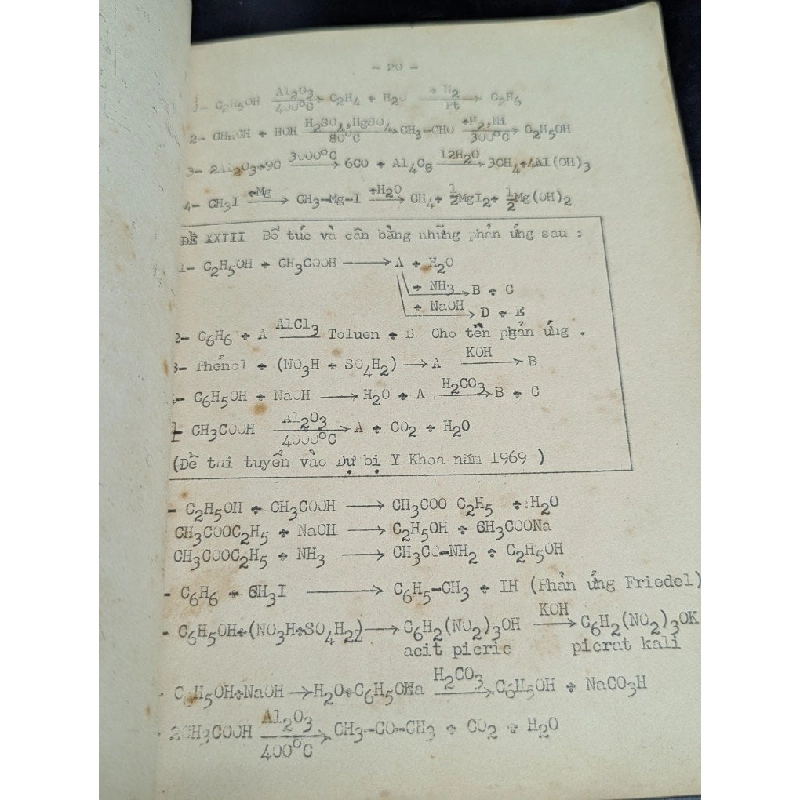 - 20 -
1- C2H5OH Al2O3 400°C C2H4 + H2O + H2 Pt C2H6
2- + HOH H2SO4,HgSO4 80°C CH3-CHO +H2,Ni 300°C C2H5OH
3- 2Al2O3+9C 3000°C 6CO + Al4C3 12H2O 3CH4+4Al(OH)3
4- CH3I +Mg CH3-Mg-I +H2O CH4+ 1/2MgI2+ 1/2Mg(OH)2
ĐỀ XXIII Bổ túc và cân bằng những phản ứng sau :
1- C2H5OH + CH3COOH → A + H2O
+ NH3 → B + C
+ NaOH → D + E
2- C6H6 + A AlCl3 Toluen + B Cho tên phản ứng .
3- Phénol + (NO3H + SO4H2) → A KOH → B
- C6H5OH + NaOH → H2O + A H2CO3 → B + C
- CH3COOH Al2O3 4000°C A + CO2 + H2O
(Đề thi tuyển vào Dự bị Y Khoa năm 1969 )
- C2H5OH + CH3COOH → CH3COO C2H5 + H2O
CH3COOC2H5 + NaOH → C2H5OH + CH3COONa
CH3COOC2H5 + NH3 → CH3CO-NH2 + C2H5OH
- C6H6 + CH3I → C6H5-CH3 + IH (Phản ứng Friedel)
- C6H5OH+(NO3H+SO4H2) → C6H2(NO2)3OH KOH → C6H2(NO2)3OK
acit picric picrat kali
- C6H5OH+NaOH → H2O+C6H5ONa H2CO3 → C6H5OH + NaCO3H
- 2CH3COOH Al2O3 400°C CH3-CO-CH3 + CO2 + H2O